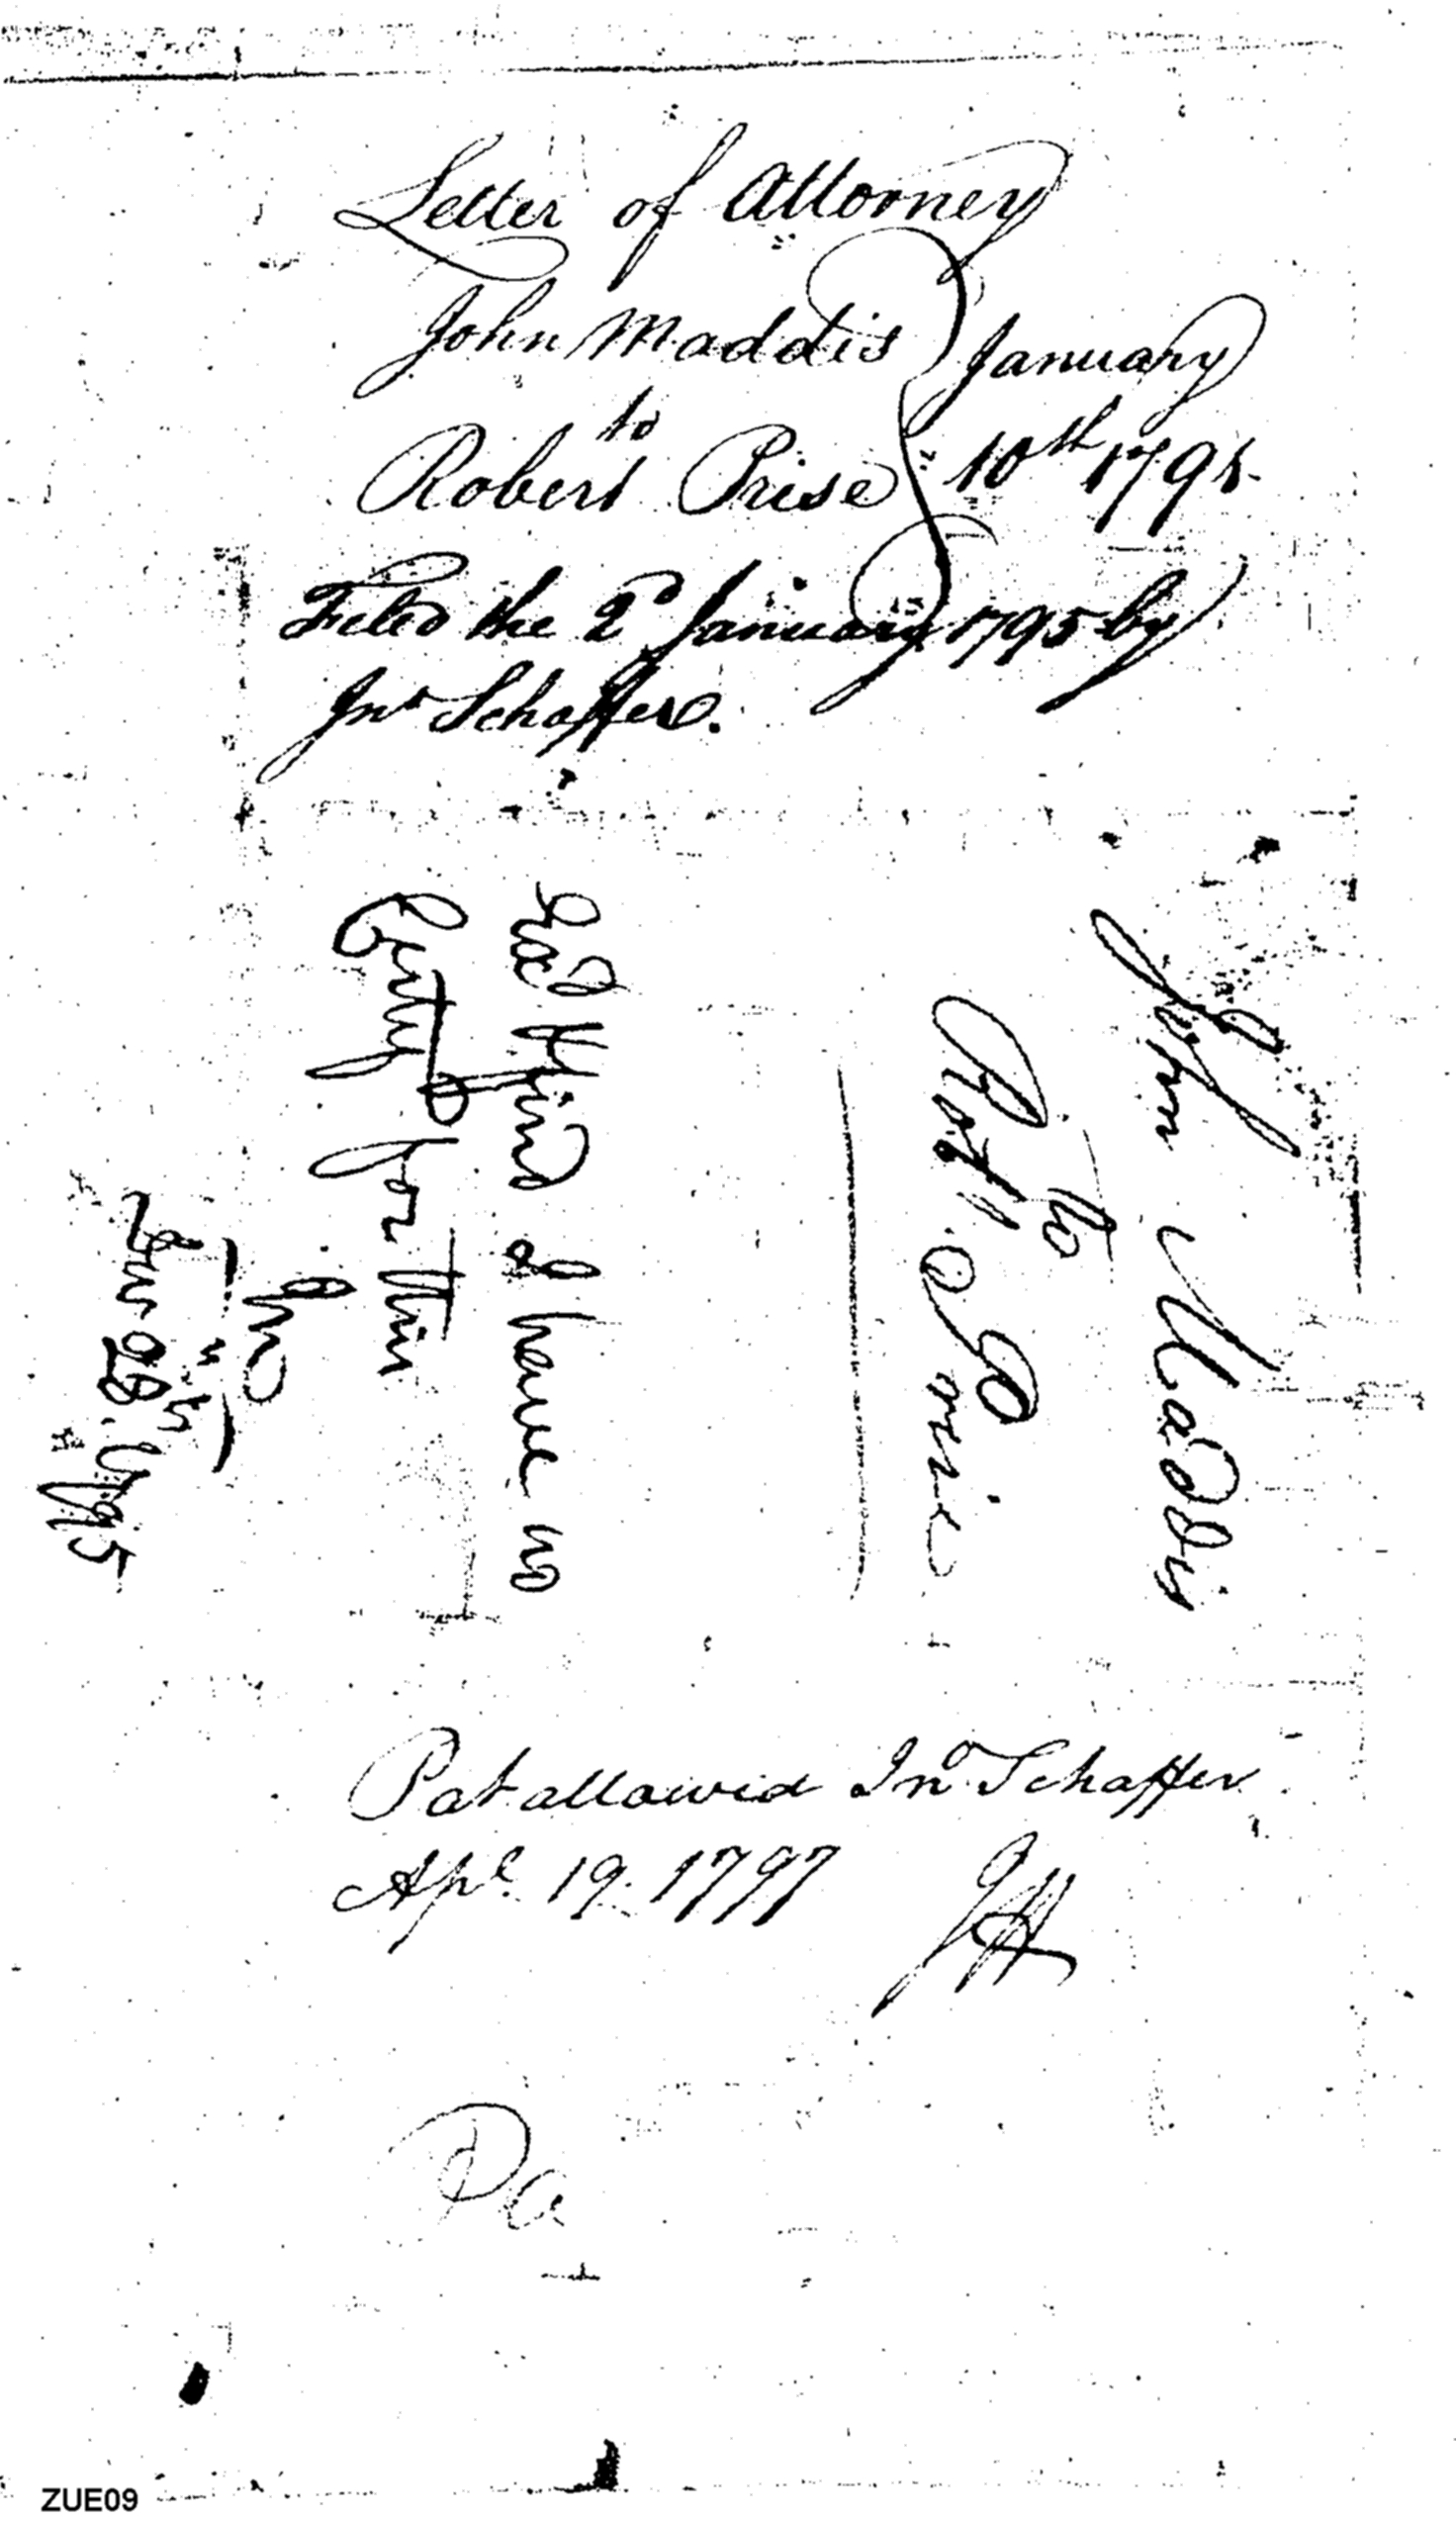 Letter of Attorney
John Maddis January
to
Robert Prise 10th 1791
Filed the 2d January 1795 by
Jno Schaffer.
John Maddis
to
Robt
had Hind I have no
for this
28. 1795
Pat allowed Jno Schaffer
Apl. 19. 1797
JH
Pa
ZUE09